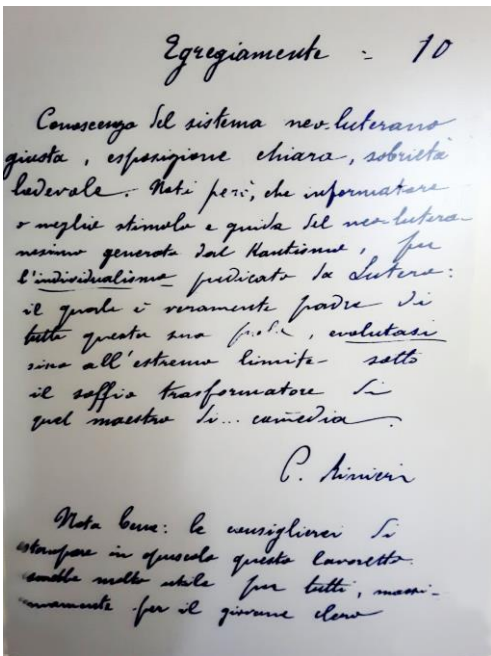 Egregiamente = 10
Conoscenza del sistema neo-luterano
giusta, esposizione chiara, sobrietà
lodevole. Noti però, che informatore
o meglio stimolo e guida del neo-lutera-
nesimo generato dal Kantismo, fu
l'individualismo predicato da Lutero:
il quale è veramente padre di
tutta questa sua prole, evolutasi
sino all'estremo limite sotto
il soffio trasformatore di
quel maestro di... comedia.
P. Rinieri
Nota bene: le consiglierei di
stampare in opuscolo questo lavoretto.
sarebbe molto utile per tutti, massi-
mamente per il giovane clero